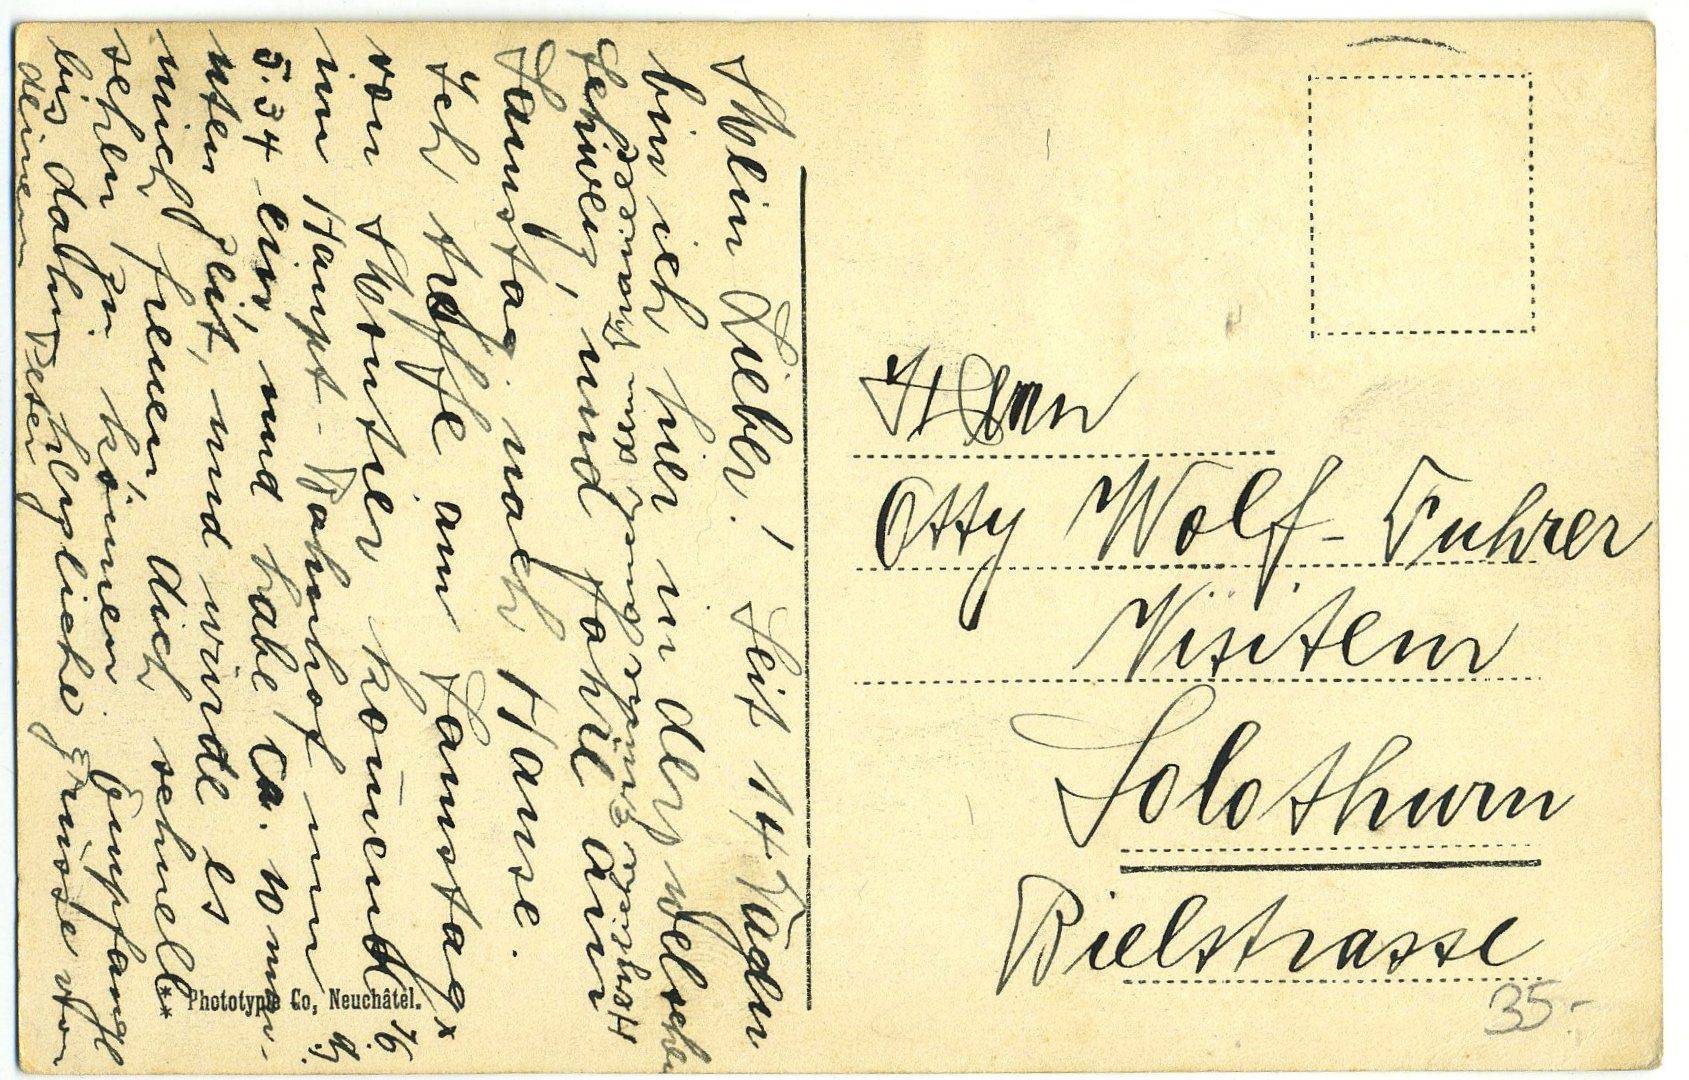 Mein Lieber! Seit 14 Tagen
bin ich hier in der welschen
Schweiz, und fahre am
Samstag nach Hause.
Ich treffe am Samstag
von Montier kommend
im Haupt-Bahnhof um
5.34 ein, und habe ca. 10 min-
uten Zeit, und würde es
mich freuen, dich schnell
sehen zu können. Empfange
bis dahin herzliche Grüsse von
deinem Peter
Herrn
Otty Wolf-Fuhrer
Solothurn
Bielstrasse
Phototypie Co, Neuchâtel.
35.-